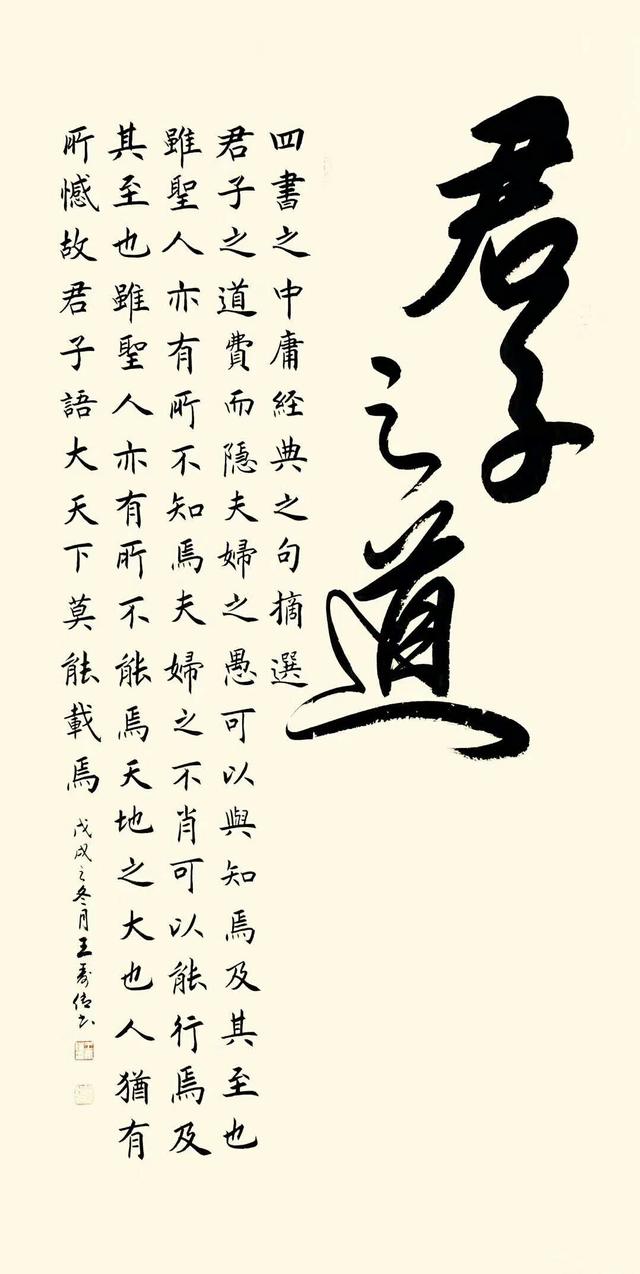 君子之道
四書之中庸經典之句摘選
君子之道費而隱夫婦之愚可以與知焉及其至也
雖聖人亦有所不知焉夫婦之不肖可以能行焉及
其至也雖聖人亦有所不能焉天地之大也人猶有
所憾故君子語大天下莫能載焉
戊戌之冬月王壽倩书